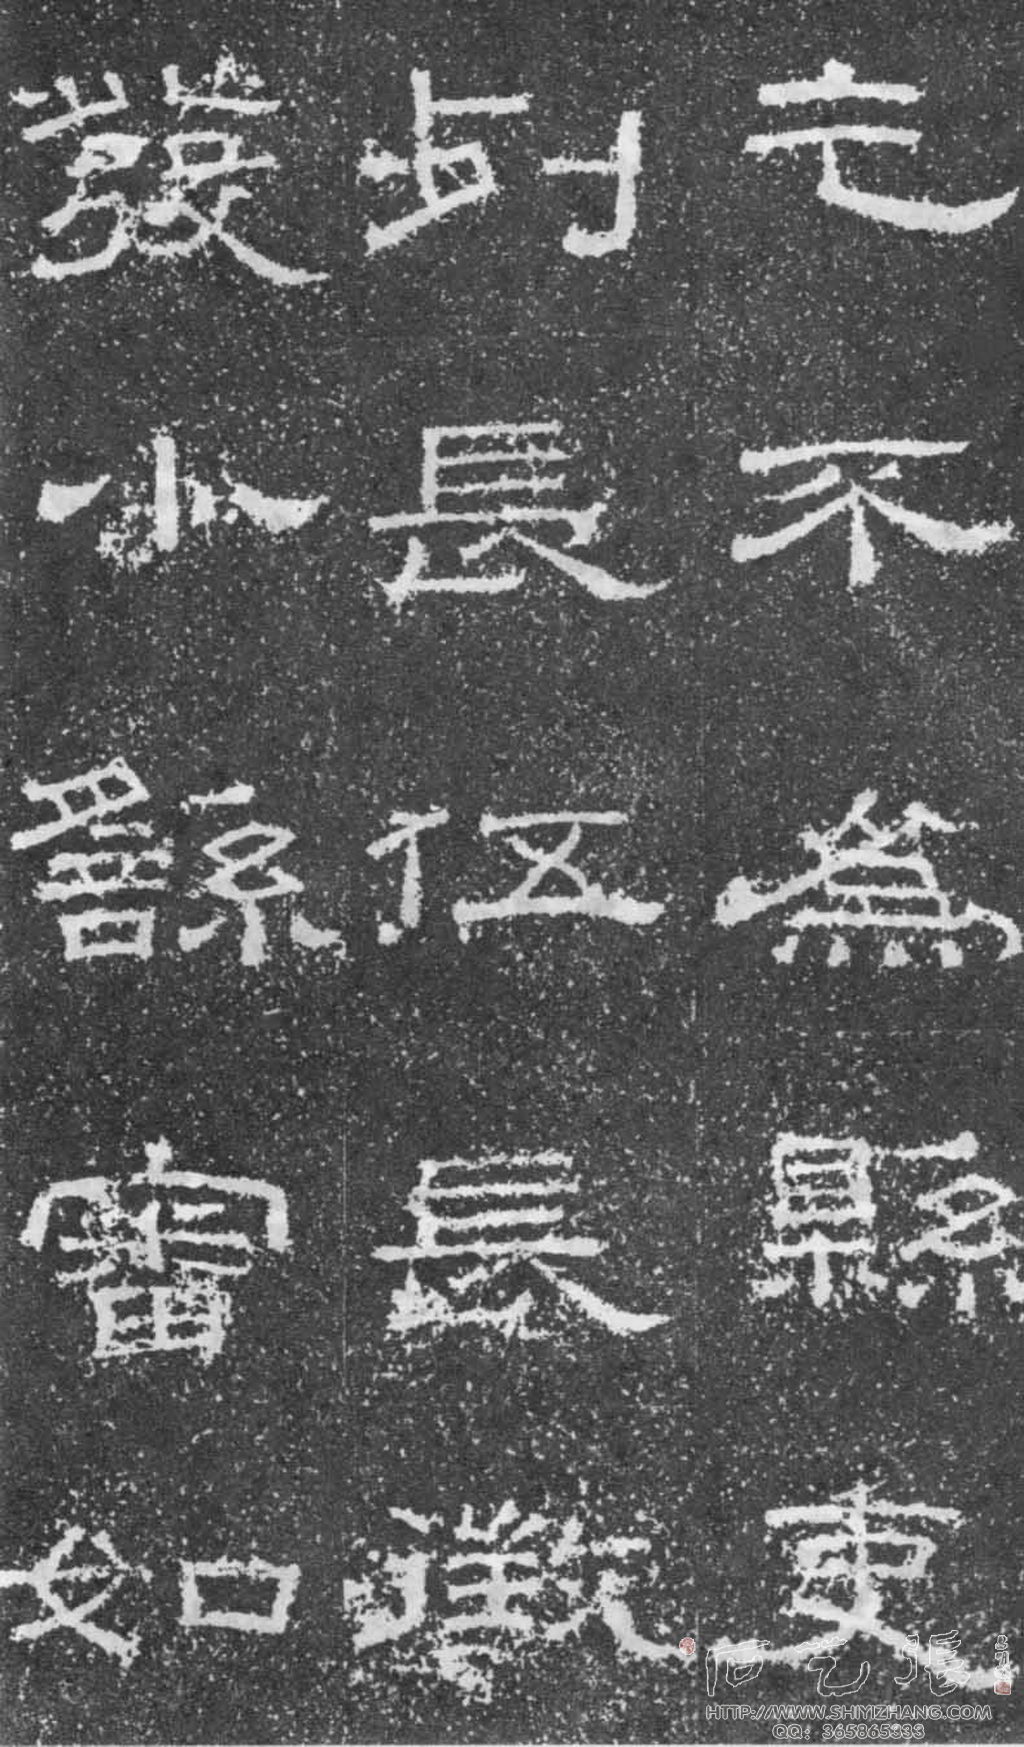 乞不為縣吏
列長伍長徵
發小繇審如
石艺張
HTTP://WWW.SHIYIZHANG.COM
QQ: 365865333